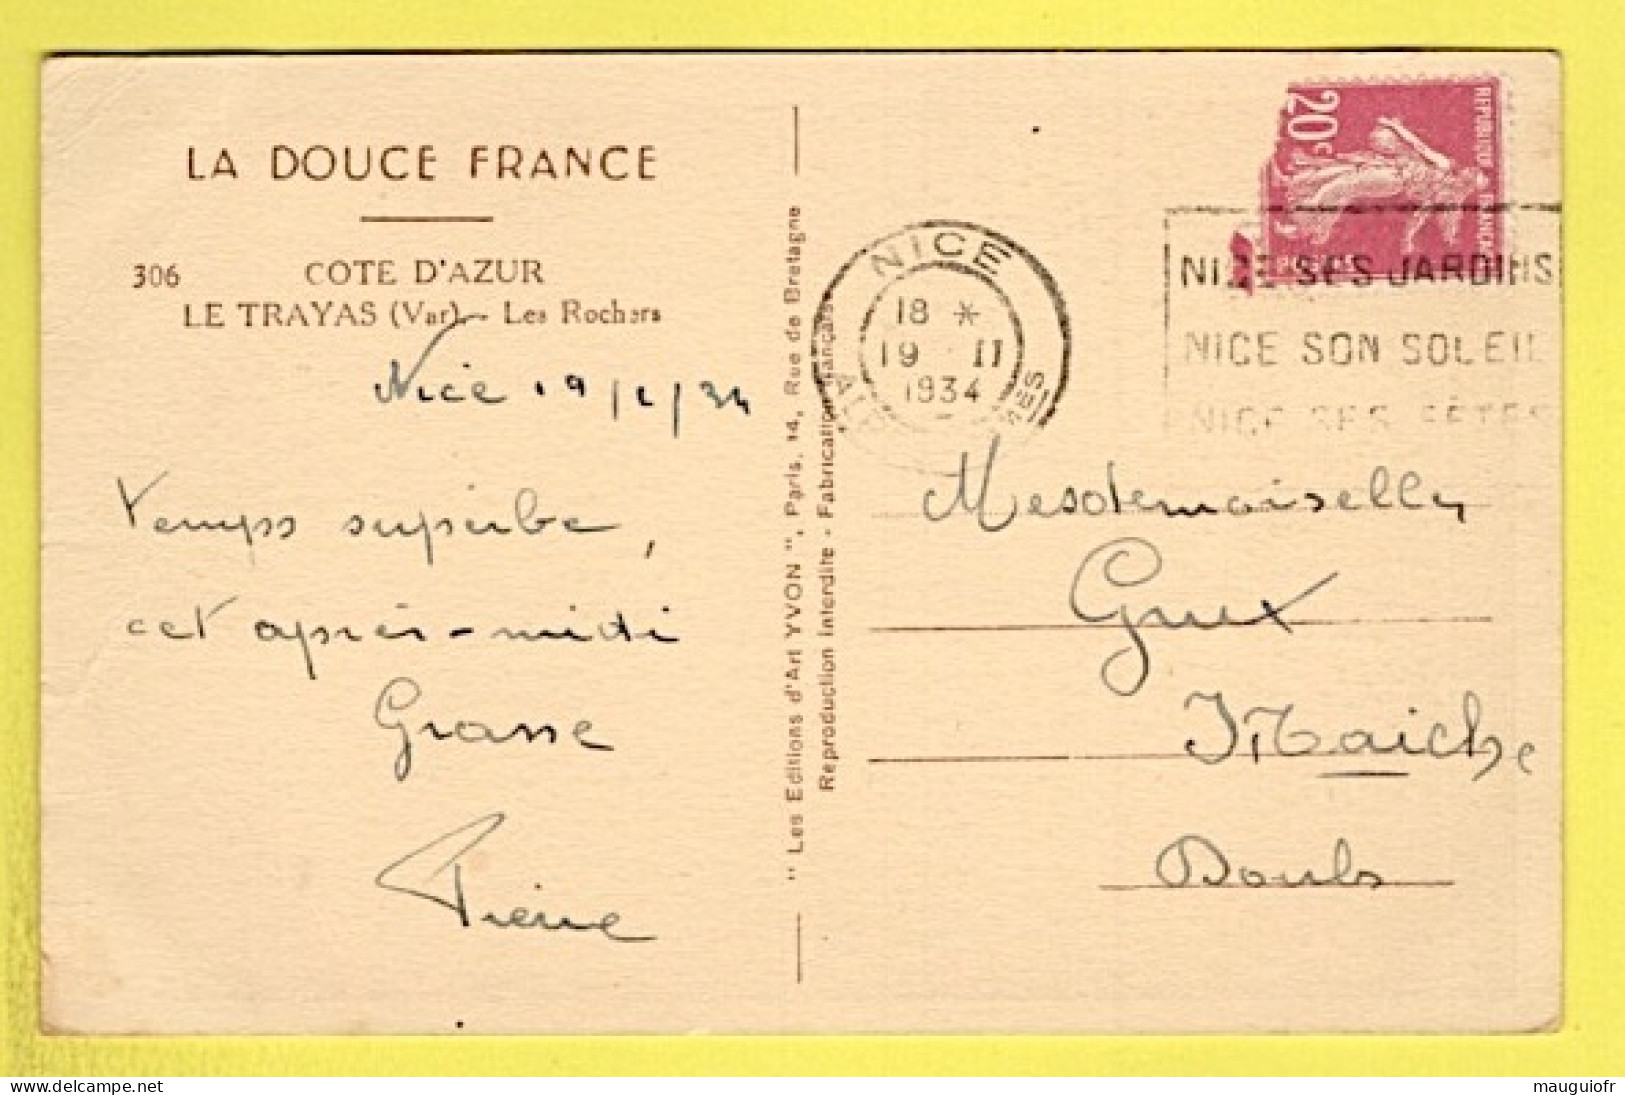 LA DOUCE FRANCE
306 COTE D'AZUR
LE TRAYAS (Var) - Les Rochers
Nice 19/2/34
Temps superbe,
cet après-midi
Grasse
Pierre
" Les Editions d'Art YVON ", Paris, 14, Rue de Bretagne
Reproduction interdite - Fabrication Française
NICE
18 *
19 II
1934
20c
REPUBLIQUE FRANÇAISE
NICE SES JARDINS
NICE SON SOLEIL
NICE SES FÊTES
Mesdemoiselles
Grux
Maiche
Doubs
mauguiofr